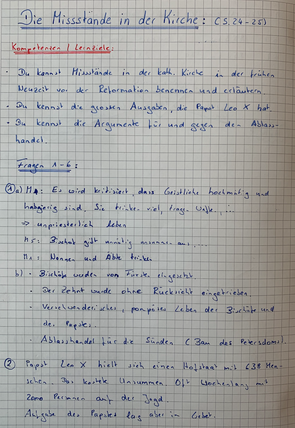 Die Missstände in der Kirche: (S. 24-25)
Kompetenzen / Lernziele:
- Du kannst Missstände in der kath. Kirche in der frühen
Neuzeit vor der Reformation benennen und erläutern
- Du kennst die grossen Ausgaben, die Papst Leo X hat.
- Du kennst die Argumente für und gegen den Ablass-
handel.
Fragen 1-6:
① a) M4: Es wird kritisiert, dass Geistliche hochmütig und
habgierig sind. Sie trinken viel, tragen Waffen, ...
⇒ unpriesterlich leben
M5: Bischof gibt unnötig aus, ...
Nonnen und Äbte trinken
b) - Bischöfe wurden von Fürsten eingesetzt
- Der Zehnt wurde ohne Rücksicht eingetrieben
- Verschwenderisches, pompöses Leben der Bischöfe und
des Papstes.
- Ablasshandel für die Sünden (Bau des Petersdoms).
② Papst Leo X hielt sich einen Hofstaat mit 638 Men-
schen. Das kostete Unsummen. Oft wochenlang mit
2000 Personen auf der Jagd.
Aufgabe des Papstes lag aber im Gebet.